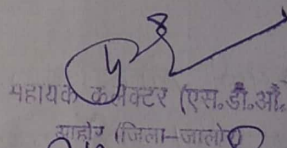 सहायक कलेक्टर (एस.डी.ओ.
साहोर (जिला-जालो